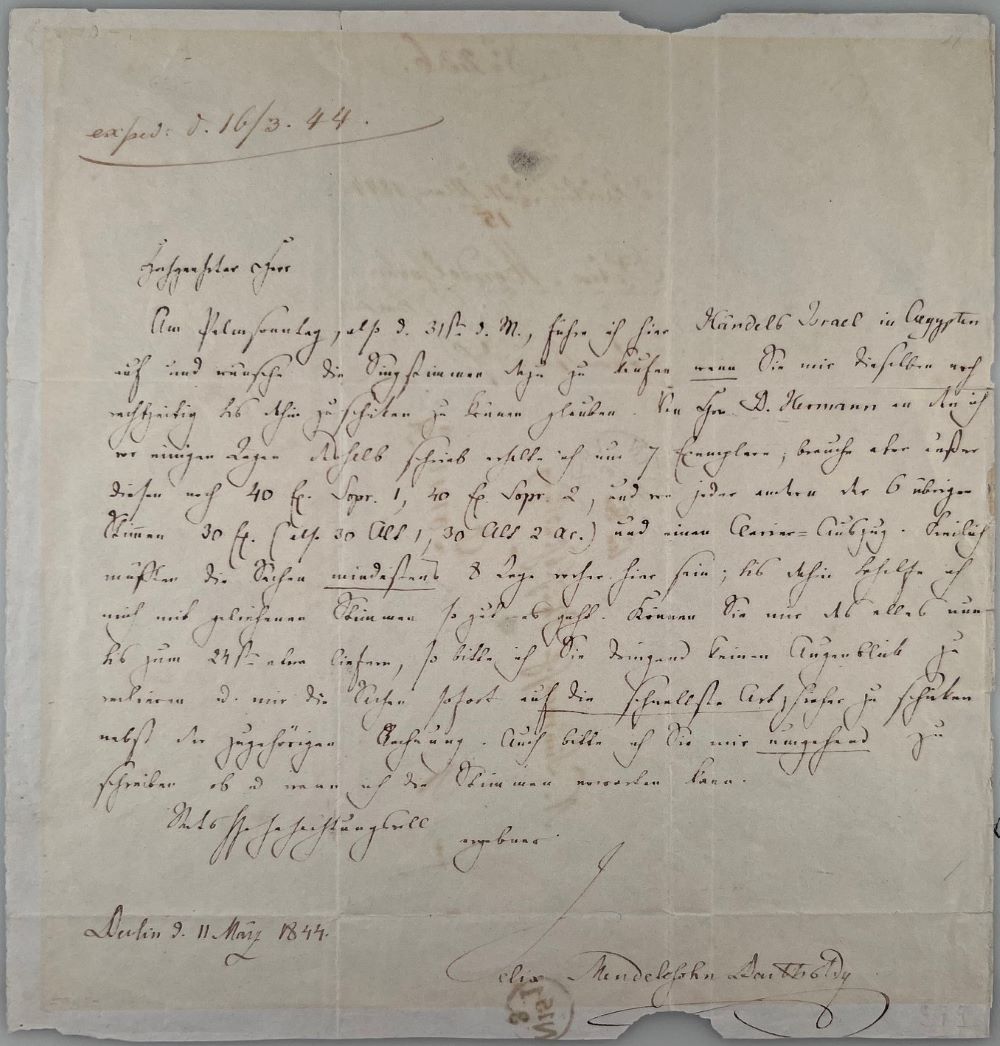 exped: d. 16/3. 44.
Hochgeehrter Herr
Am Palmsonntag, also d. 31sten d. M., führe ich hier Händels Israel in Aegypten
auf und wünsche die Singstimmen dazu zu kaufen wenn Sie mir dieselben noch
rechtzeitig bis dahin zuschicken zu können glauben. Von Hrn. D. Hermann an den ich
vor einigen Tagen deshalb schrieb erhalte ich nur 7 Exemplare; brauche aber außer
diesen noch 40 Ex. Sopr. 1, 40 Ex. Sopr. 2, und von jeder andern der 6 übrigen
Stimmen 30 Ex. (also 30 Alt 1, 30 Alt 2 ac.) und einen Clavier=Auszug. Freilich
müßten die Sachen mindestens 8 Tage vorher hier sein; bis dahin behelfe ich
mich mit geliehenen Stimmen so gut es geht. Können Sie mir das alles nun
bis zum 24sten etwa liefern, so bitte ich Sie dringend keinen Augenblick zu
verlieren u. mir die Sachen sofort auf die schnellste Art hieher zu schicken
nebst der zugehörigen Rechnung. Auch bitte ich Sie mir umgehend zu
schreiben ob u wann ich die Stimmen erwarten kann.
Stets hochachtungsvoll
ergebner
Berlin d. 11 März 1844.
Felix Mendelssohn Bartholdy